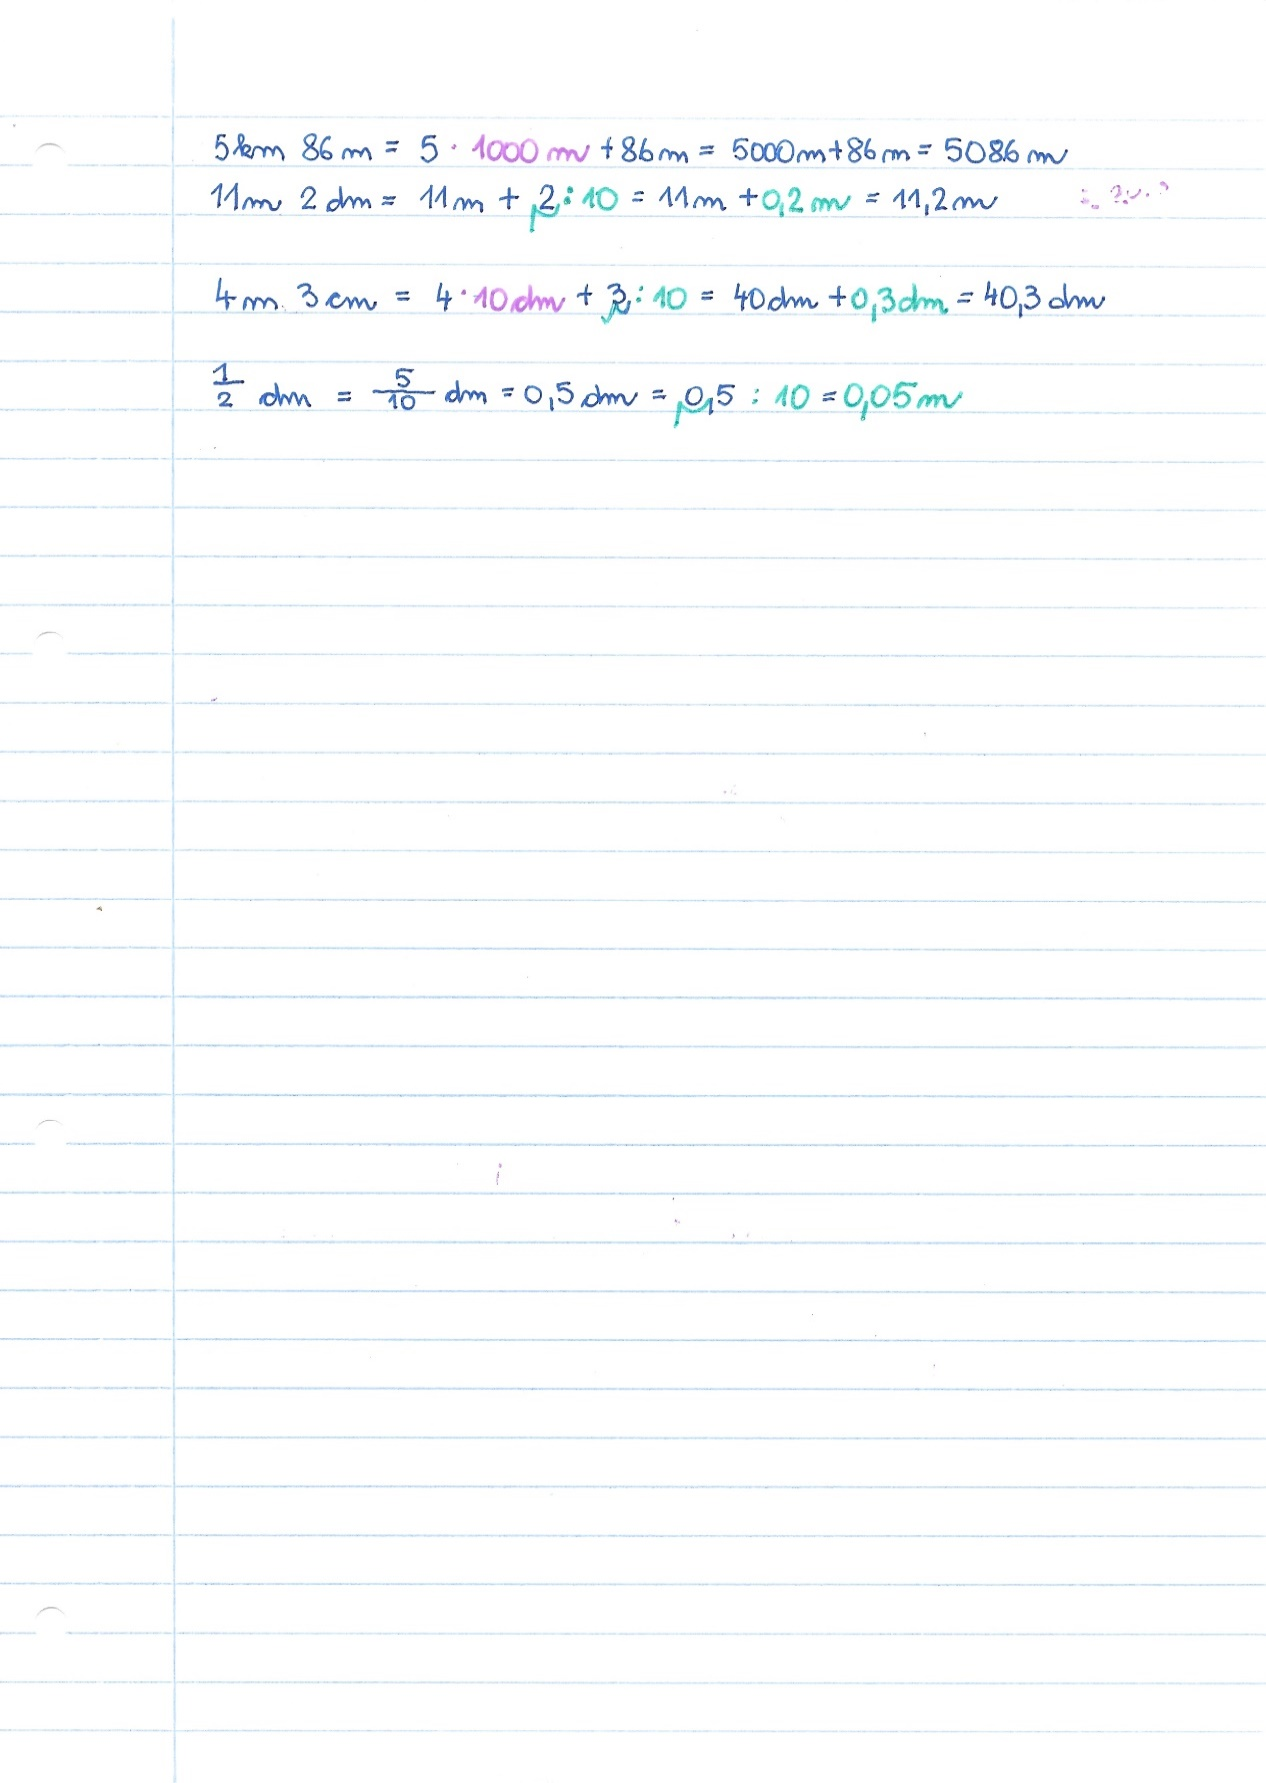 5km 86m = 5 · 1000 m + 86m = 5000m + 86m = 5086 m
11m 2 dm = 11m + 2 : 10 = 11m + 0,2m = 11,2m
4m 3cm = 4 · 10dm + 3 : 10 = 40dm + 0,3dm = 40,3 dm
1/2 dm = 5/10 dm = 0,5 dm = 0,5 : 10 = 0,05m